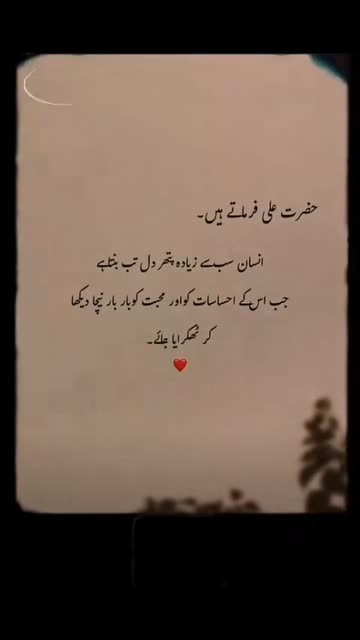 حضرت علی فرماتے ہیں۔
انسان سب سے زیادہ پتھر دل تب بنتا ہے
جب اس کے احساسات کو اور محبت کو بار بار نیچا دیکھا
کر ٹھکرایا جائے۔
❤️